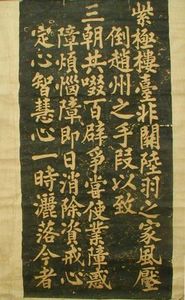 紫極樓臺非關陸羽之家風壓
倒趙州之手段以致
三朝共啜百辟爭嘗使業障惑
障煩惱障即日消除資戒心
定心智慧心一時灑落今者